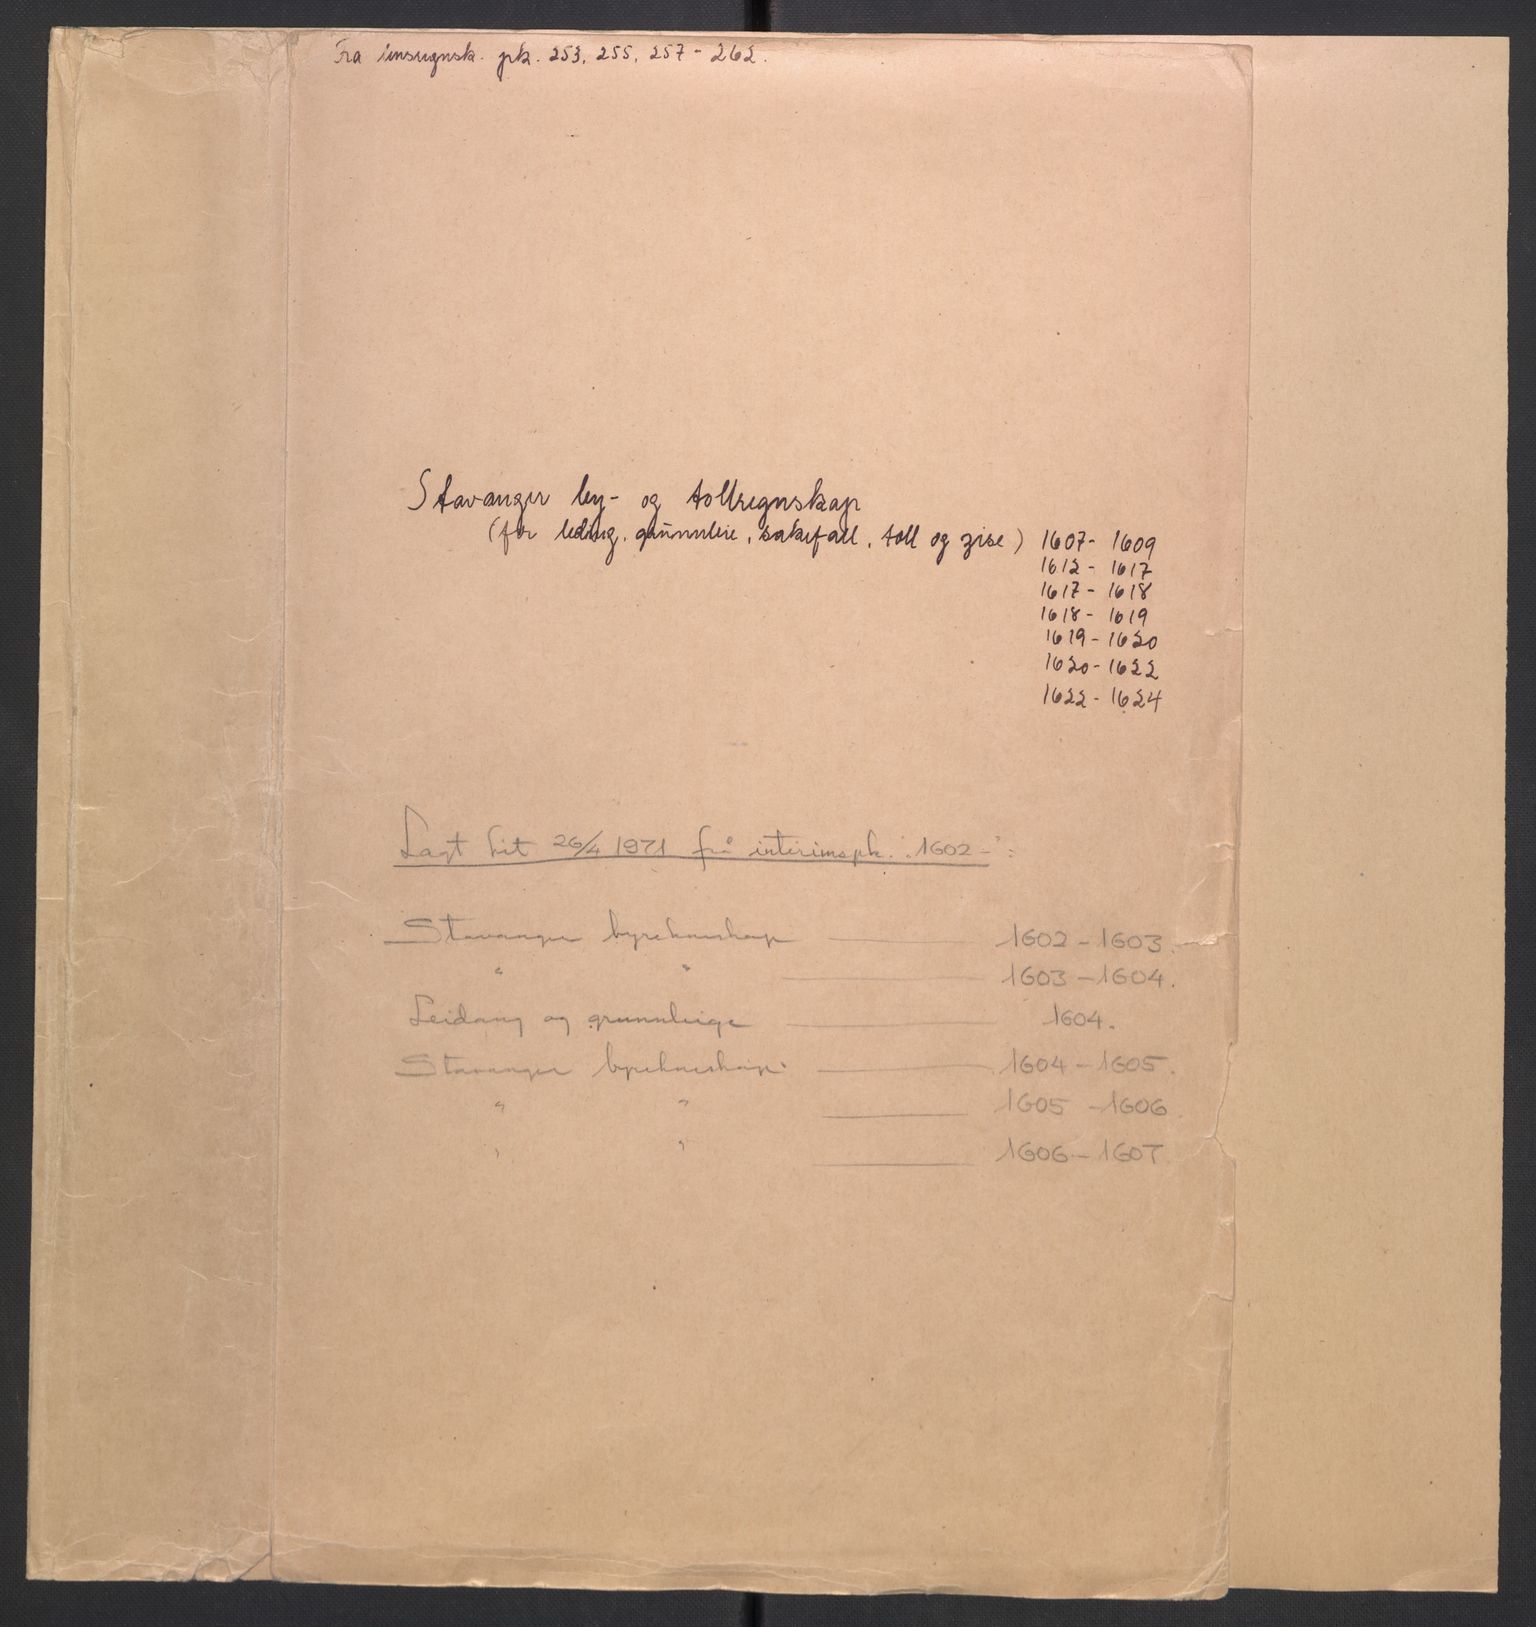 Fra lensregnsk. pk. 253, 255, 257 - 262.
Stavanger by- og tollregnskap
(for leding, grunnleie, sakefall, toll og zise) 1607 - 1609
1612 - 1617
1617 - 1618
1618 - 1619
1619 - 1620
1620 - 1622
1622 - 1624
Lagt hit 26/4 1971 frå interimspk. "1602 - ":
Stavanger byrekneskap 1602 - 1603.
" " 1603 - 1604.
Leidang og grunnleige 1604.
Stavanger byrekneskap 1604 - 1605.
" " 1605 - 1606
" " 1606 - 1607.